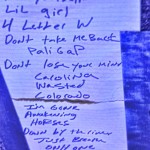 LiL girl
4 Letter W
Dont take me Back
Pali Gap
Dont lose your mind
Carolina
Wasted
Colorado
I'm Gone
Awakening
Horses
Down by the river
Just Breath
only one